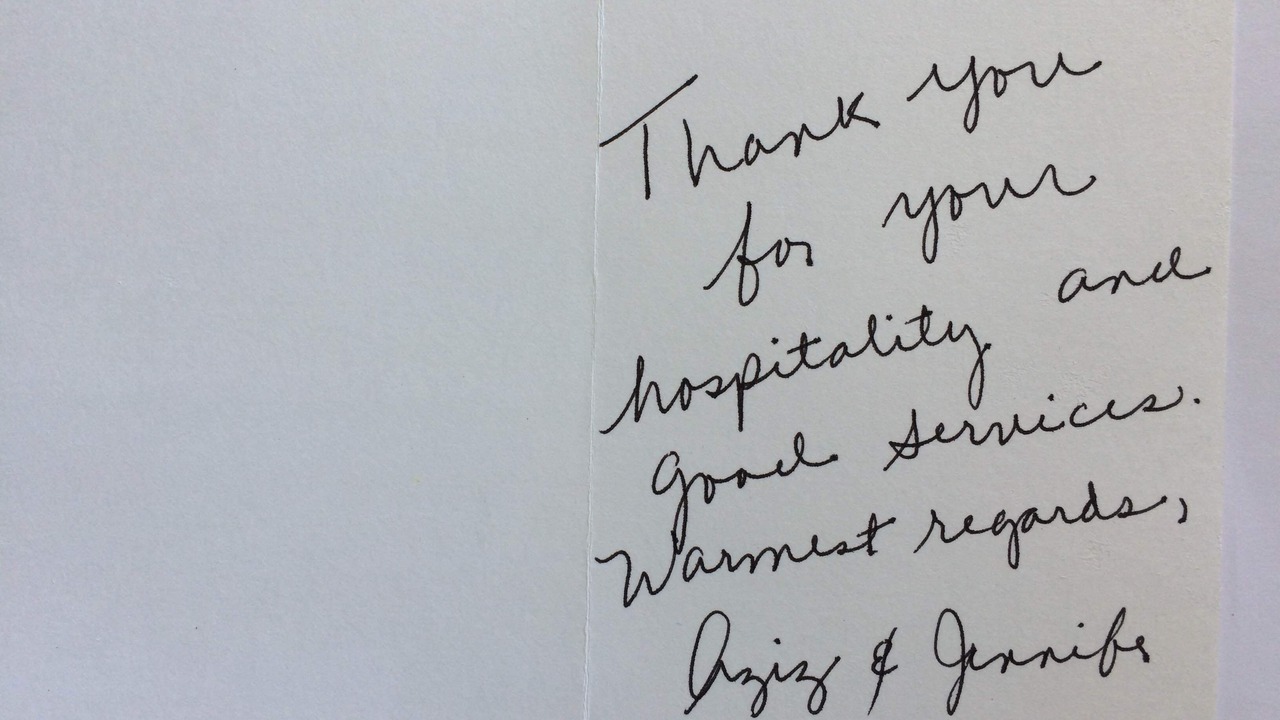 Thank you
for your
hospitality and
good services.
Warmest regards,
Aziz & Jennifer